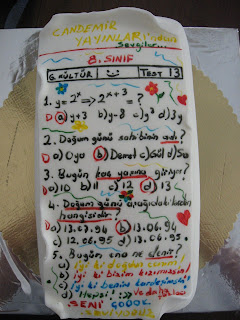 CANDEMİR
YAYINLARI'ndan
Sevgiler...
8. SINIF
G. KÜLTÜR
TEST 13
1. y=2ˣ ⇒ 2ˣ⁺³ = ?
a) y+3 b) y-8 c) y³ d) 3y
2. Doğum günü sahibinin adı?
a) Oya b) Demet c) Gül d) Su
3. Bugün kaç yaşına giriyor?
a) 10 b) 11 c) 12 d) 13
4. Doğum günü aşağıdakilerden
hangisidir?
a) 13.07.94 b) 13.06.94
c) 12.06.95 d) 13.06.95
5. Bugün ona ne denir?
a) İyi ki doğdun canım!
b) İyi ki bizim kızımızsın!
c) İyi ki benim kardeşimsin!
d) Hepsi
SENİ ÇOOOK
SEVİYORUZ